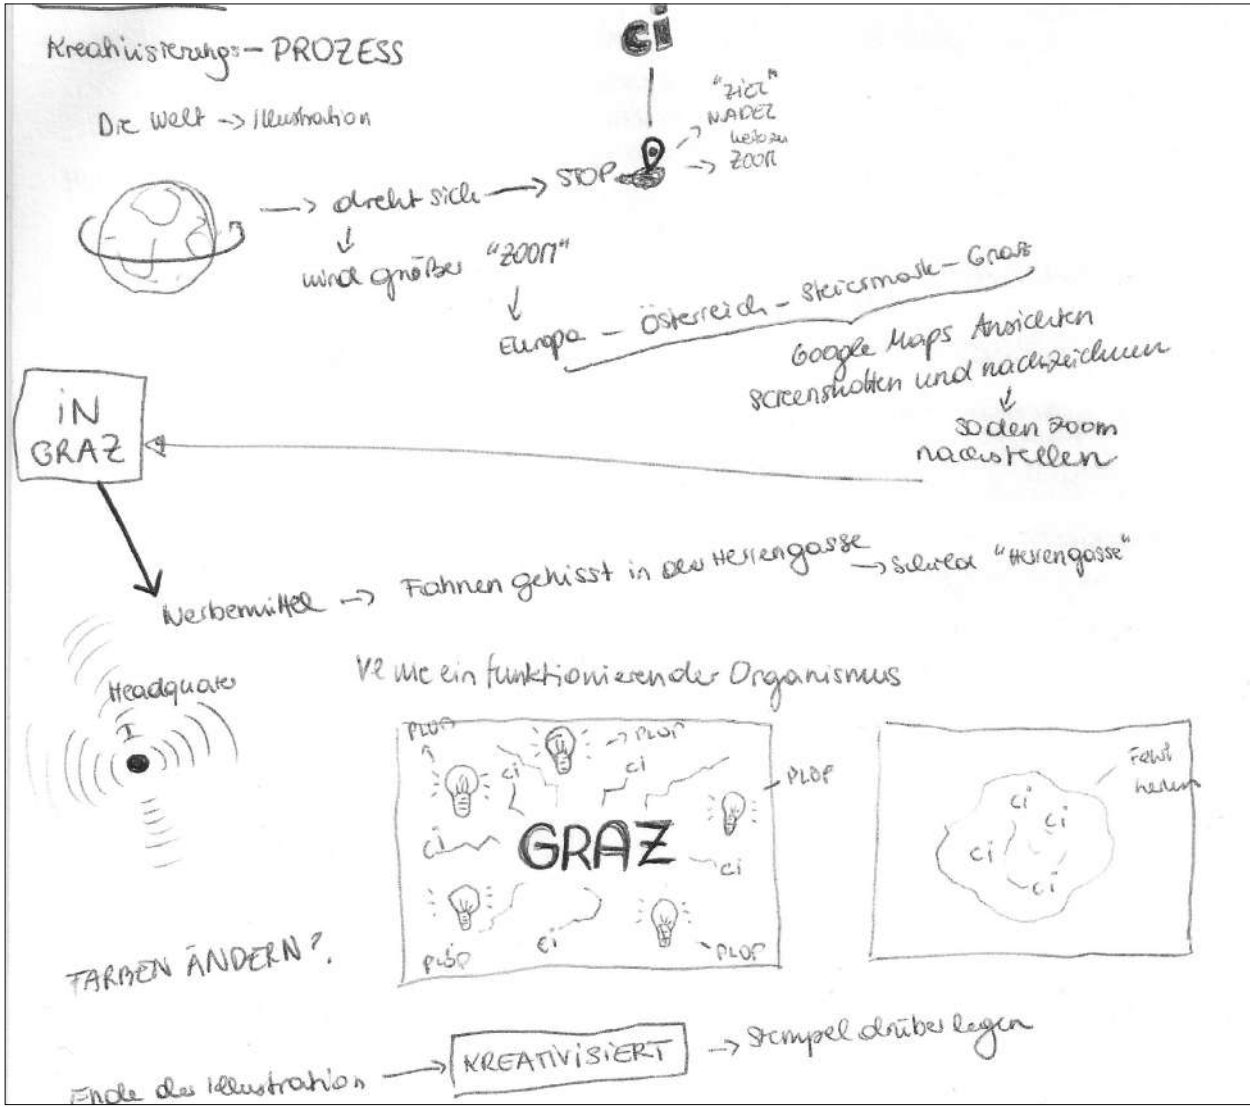 Kreativisierungs-PROZESS
ci
Die Welt -> Illustration
"ZIEL"
NADEL
ZOOM
-> dreht sich -> STOP
wird größer "ZOOM"
Europa - Österreich - Steiermark - Graz
Google Maps Ansichten
screenshotten und nachzeichnen
so den zoom
nachstellen
iN
GRAZ
Werbemittel -> Fahnen gehisst in der Herrengasse -> Schild "Herrengasse"
Headquater
wie ein funktionierender Organismus
PLOP
PLOP
ci
ci
PLOP
ci
GRAZ
ci
ci
PLOP
PLOP
ci
ci
ci
ci
FARBEN ÄNDERN?
Ende der Illustration -> KREATIVISIERT -> Stempel drüber legen